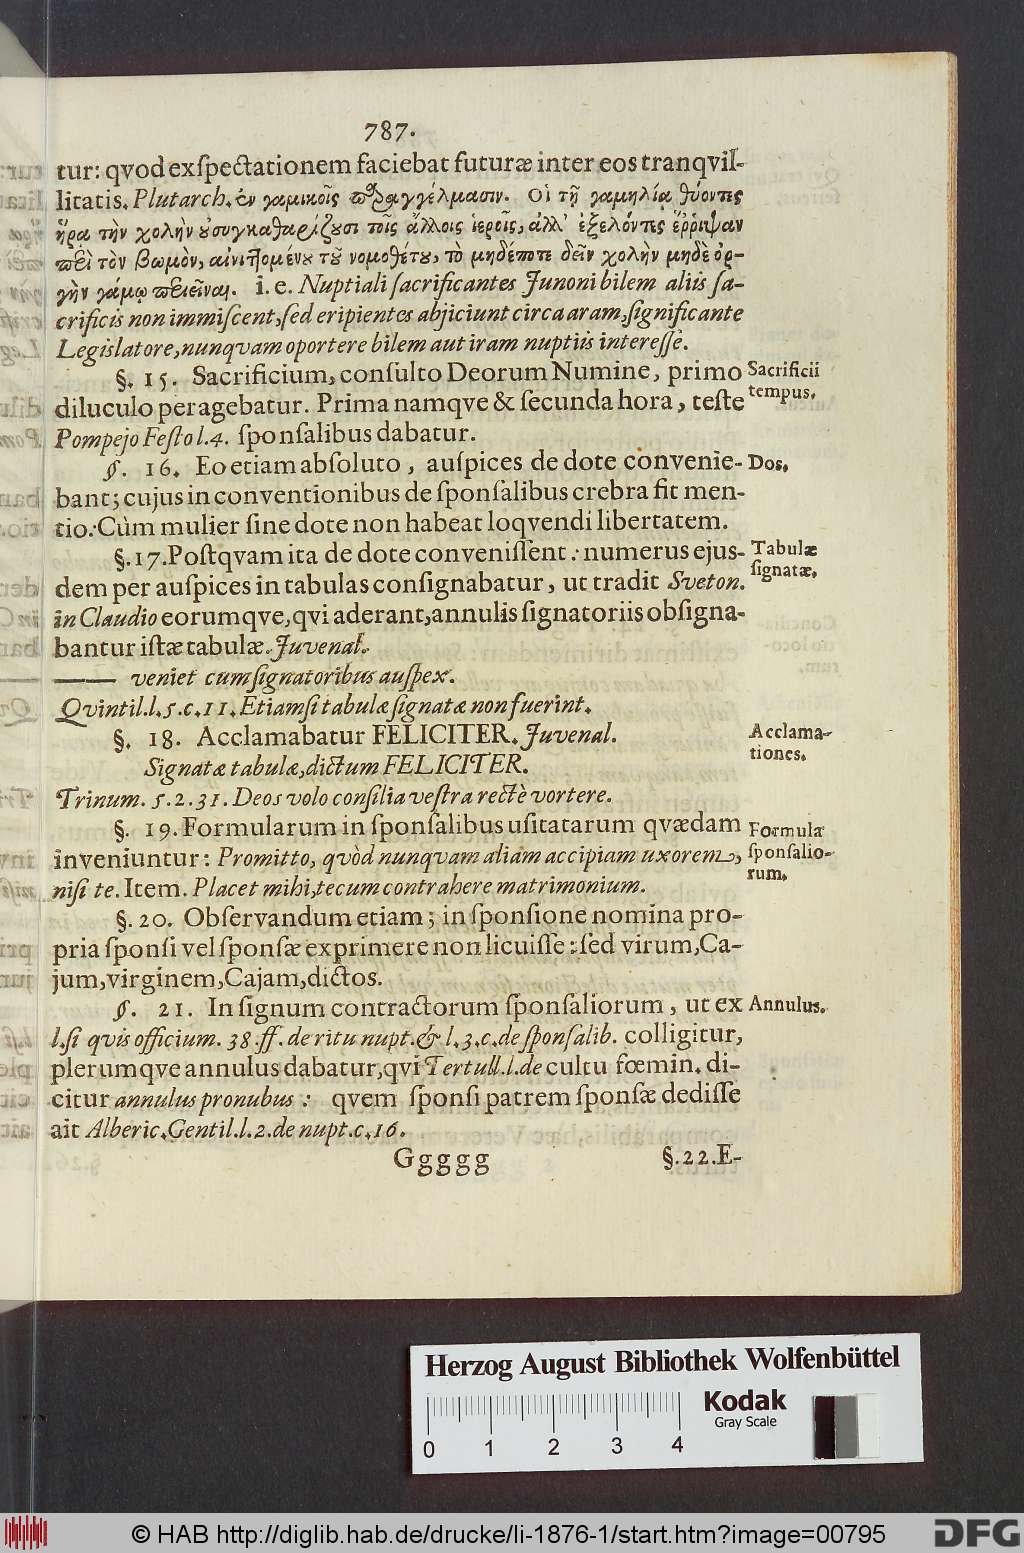 787.
tur: qvod exſpectationem faciebat futuræ inter eos tranqvil-
litatis. Plutarch. ἐν γαμικοῖς παραγγέλμασιν. Οἱ τῇ γαμηλίᾳ θύοντες
ἥρᾳ τὴν χολὴν ȣ̓ συγκαθαγίζȣσι τοῖς ἄλλοις ἱεροῖς, ἀλλ' ἐξελόντες ἔῤῥιψαν
περὶ τὸν βωμὸν, αἰνιττομένȣ τȣ͂ νομοθέτȣ, τὸ μηδέποτε δεῖν χολὴν μηδὲ ὀρ-
γὴν γάμῳ παρεῖναι. i. e. Nuptiali ſacrificantes Junoni bilem aliis ſa-
crificis non immiſcent, ſed eripientes abjiciunt circa aram, ſignificante
Legislatore, nunquam oportere bilem aut iram nuptiis intereſſe.
§. 15. Sacrificium, conſulto Deorum Numine, primo
Sacrificii
diluculo peragebatur. Prima namqve & ſecunda hora, teſte
tempus.
Pompejo Feſto l. 4. ſponſalibus dabatur.
§. 16. Eo etiam abſoluto, auſpices de dote convenie-
Dos.
bant; cujus in conventionibus de ſponſalibus crebra fit men-
tio: Cùm mulier ſine dote non habeat loqvendi libertatem.
§. 17. Poſtqvam ita de dote conveniſſent: numerus ejus-
Tabulæ
dem per auſpices in tabulas conſignabatur, ut tradit Sveton.
ſignatæ.
in Claudio eorumqve, qvi aderant, annulis ſignatoriis obſigna-
bantur iſtæ tabulæ. Juvenal.
—— veniet cum ſignatoribus auſpex.
Qvintil. l. 5. c. 11. Etiamſi tabulæ ſignatæ non fuerint.
§. 18. Acclamabatur FELICITER. Juvenal.
Acclama-
tiones.
Signatæ tabulæ, dictum FELICITER.
Trinum. 5. 2. 31. Deos volo conſilia veſtra rectè vortere.
§. 19. Formularum in ſponſalibus uſitatarum qvædam
Formula
inveniuntur: Promitto, quòd nunquam aliam accipiam uxorem,
ſponſalio-
rum.
niſi te. Item. Placet mihi, tecum contrahere matrimonium.
§. 20. Obſervandum etiam; in ſponſione nomina pro-
pria ſponſi vel ſponſæ exprimere non licuiſſe: ſed virum, Ca-
jum, virginem, Cajam, dictos.
§. 21. In ſignum contractorum ſponſaliorum, ut ex
Annulus.
l. ſi qvis officium. 38. ff. de ritu nupt. & l. 3. c. de ſponſalib. colligitur,
plerumqve annulus dabatur, qvi Tertull. l. de cultu fœmin. di-
citur annulus pronubus: qvem ſponſi patrem ſponſæ dediſſe
ait Alberic. Gentil. l. 2. de nupt. c. 16.
Ggggg
§. 22. E-
Herzog August Bibliothek Wolfenbüttel
Kodak
Gray Scale
0 1 2 3 4
© HAB http://diglib.hab.de/drucke/li-1876-1/start.htm?image=00795
DFG